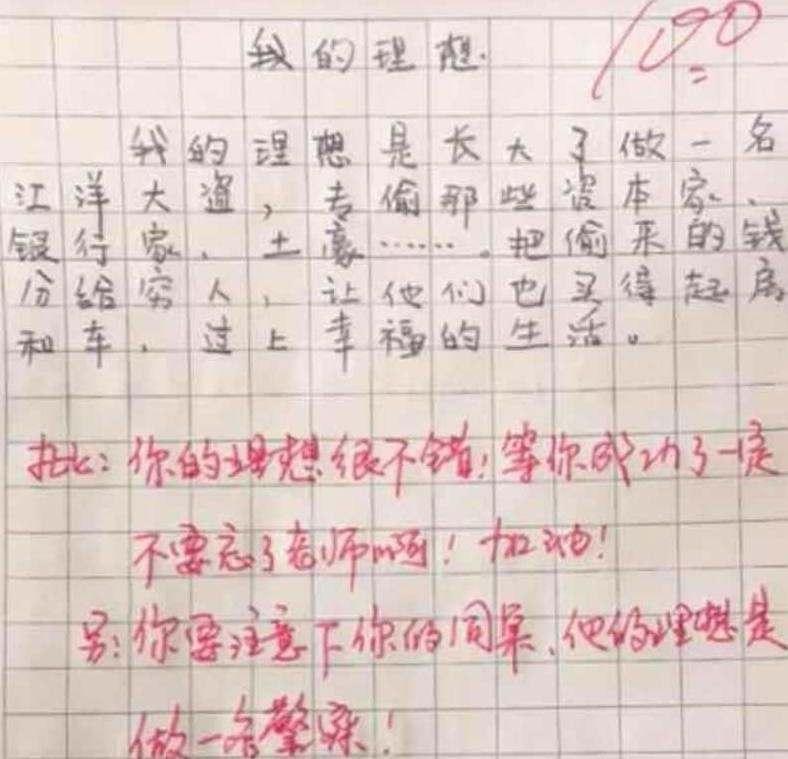 100
我的理想
我的理想是长大了做一名
江洋大盗，专偷那些资本家、
银行家、土豪……。把偷来的钱
份给穷人，让他们也买得起房
和车，过上幸福的生活。
批：你的理想很不错！等你成功了一定
不要忘了老师啊！加油！
另：你要注意下你的同桌、他的理想是
做一名警察！